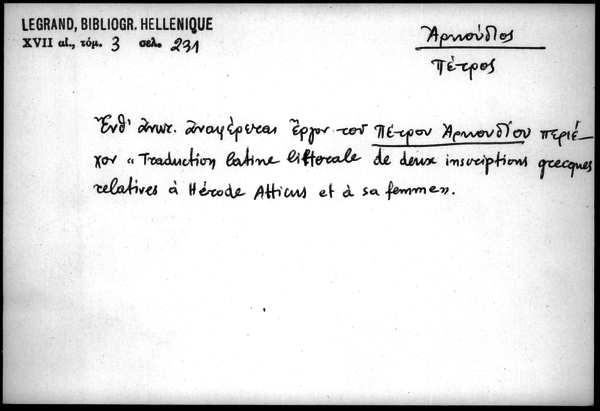 LEGRAND, BIBLIOGR. HELLENIQUE
XVII αἰ., τόμ. 3 σελ. 231
Ἀρκούδιος
Πέτρος
Ἔνθ' ἀνωτ. ἀναφέρεται ἔργον τοῦ Πέτρου Ἀρκουδίου περιέ-
χον «Traduction latine littorale de deux inscriptions grecques
relatives à Hérode Atticus et à sa femme».